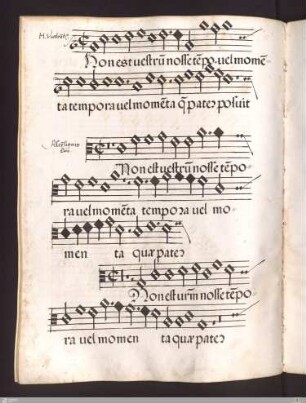 Non est vestrū nosse tēpo. vel momē-
ta tempora vel momēta q̄ pater posuit
Non est vestrum nosse tēpo-
ra vel momēta tempora vel mo-
men ta quæ pater
Non est vr̄m nosse tēpo-
ra vel momen ta quæ pater